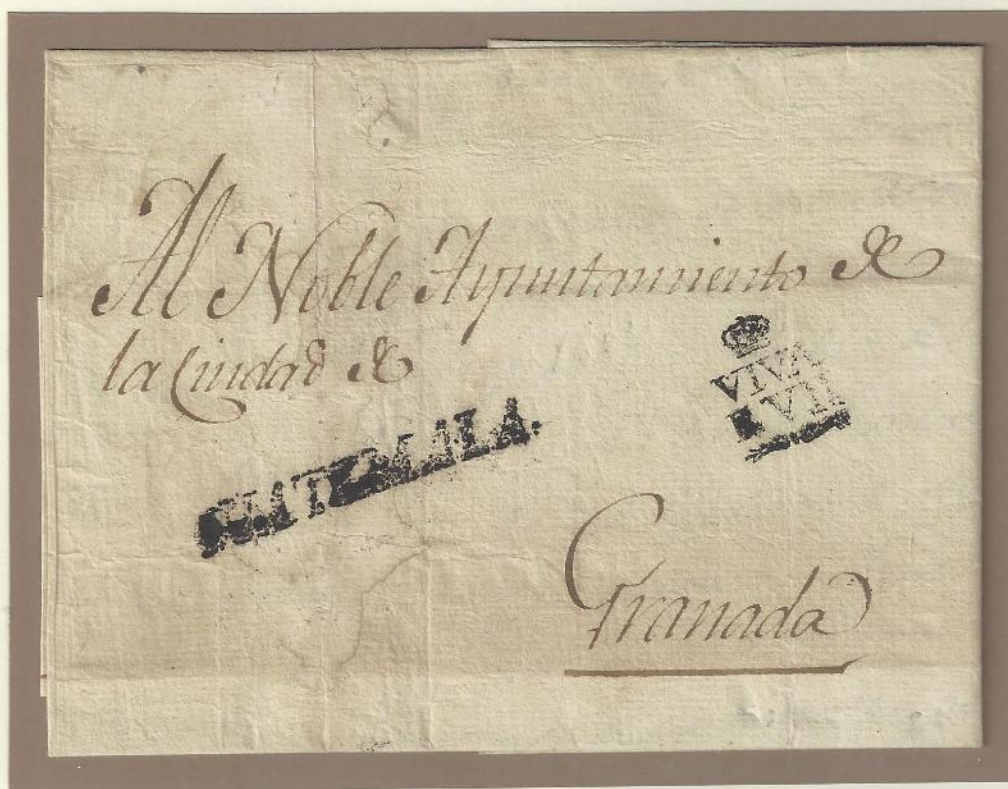 Al Noble Ayuntamiento de
la Ciudad de
GUATEMALA.
VIVA
F VII
Granada